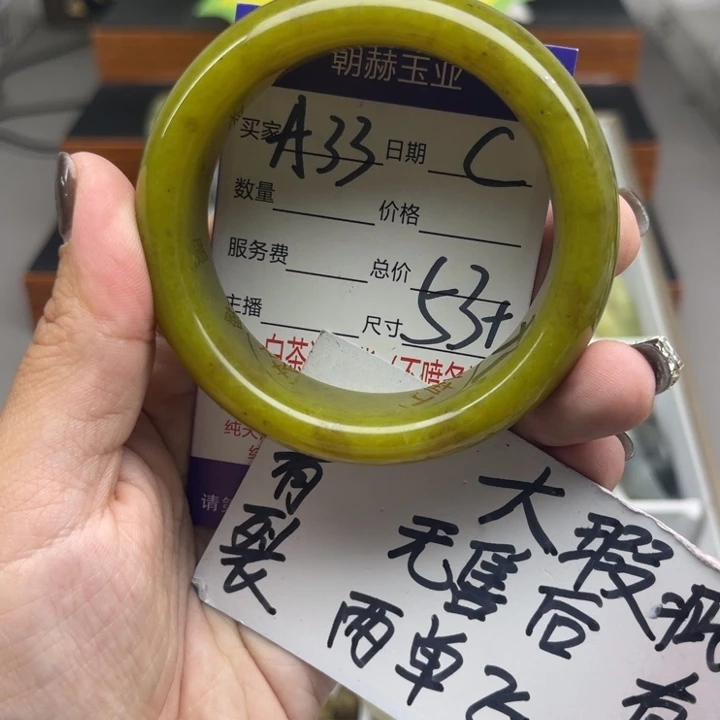 朝赫玉业
买家 A33 日期 C
数量 价格
服务费 总价
主播 尺寸 53+
白茶
纯天
请
有裂
大瑕疵
无售后
两单
有